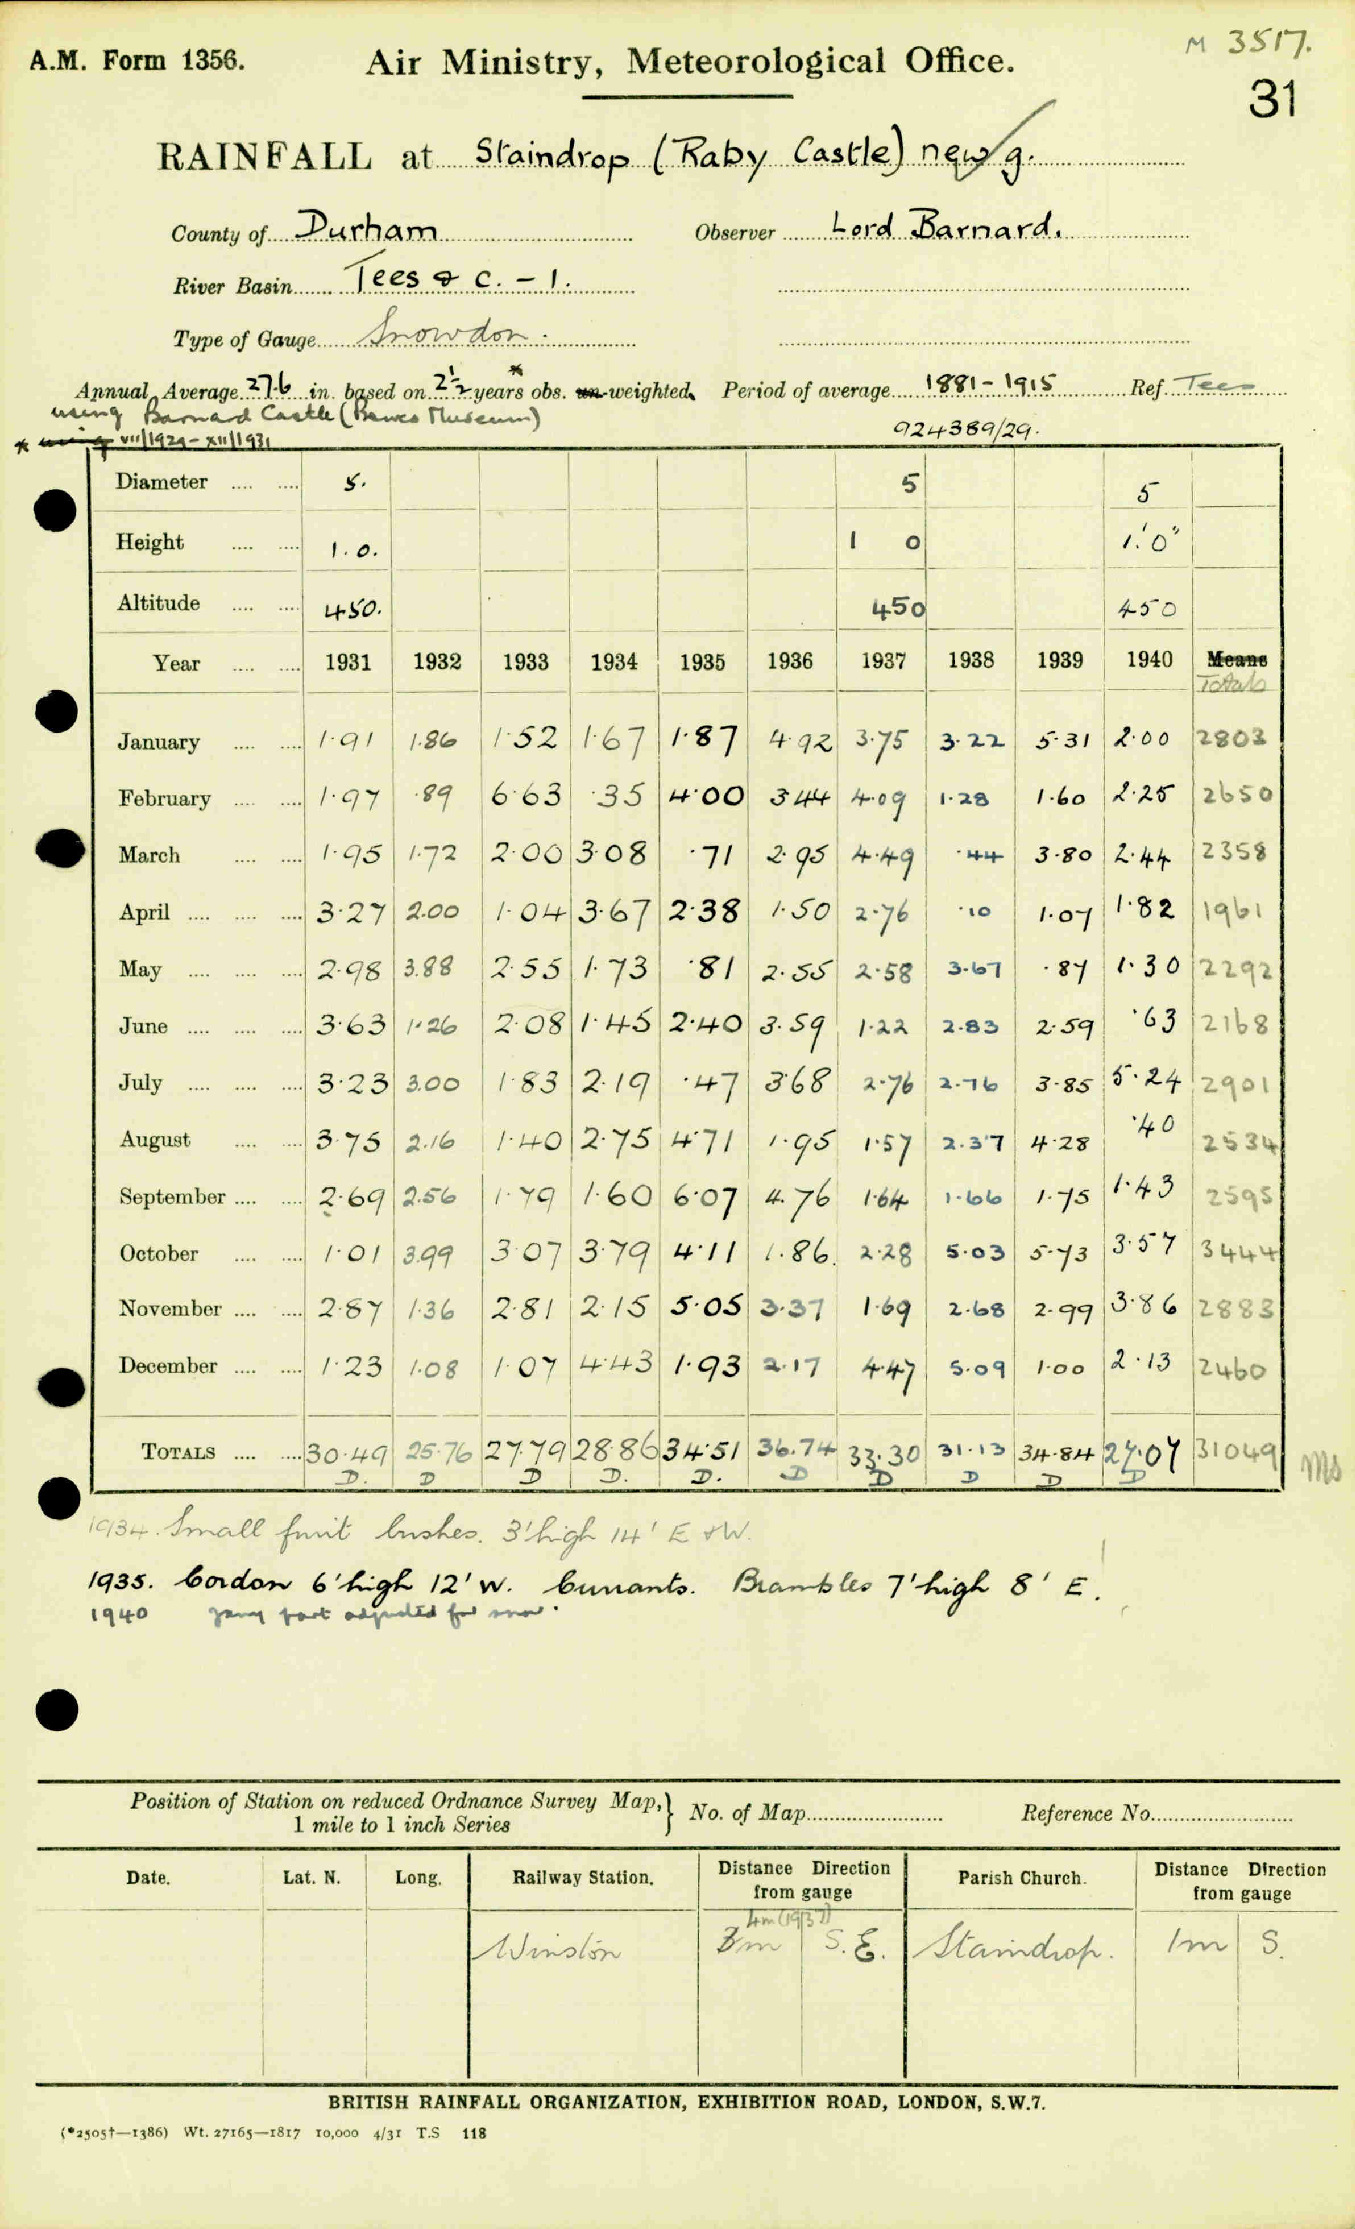 M 3517.
A.M. Form 1356. Air Ministry, Meteorological Office.
31
RAINFALL at Staindrop (Raby Castle) new g.
County of Durham Observer Lord Barnard.
River Basin Tees & C. - 1.
Type of Gauge Snowdon.
Annual Average 27.6 in. based on 2½ years* obs. un-weighted. Period of average 1881-1915 Ref. Tees
using Barnard Castle (Bowes Museum)
* using VII/1929-XII/1931 924389/29.
Diameter .... .... 5. 5 5
Height .... .... 1.0. 1 0 1'.0"
Altitude .... .... 450. 450 450
Year .... .... 1931 1932 1933 1934 1935 1936 1937 1938 1939 1940 Means
Totals
January .... .... 1.91 1.86 1.52 1.67 1.87 4.92 3.75 3.22 5.31 2.00 2803
February .... .... 1.97 .89 6.63 .35 4.00 3.44 4.09 1.28 1.60 2.25 2650
March .... .... 1.95 1.72 2.00 3.08 .71 2.95 4.49 .44 3.80 2.44 2358
April .... .... .... 3.27 2.00 1.04 3.67 2.38 1.50 2.76 .10 1.07 1.82 1961
May .... .... .... 2.98 3.88 2.55 1.73 .81 2.55 2.58 3.67 .87 1.30 2292
June .... .... .... 3.63 1.26 2.08 1.45 2.40 3.59 1.22 2.83 2.59 .63 2168
July .... .... .... 3.23 3.00 1.83 2.19 .47 3.68 2.76 2.76 3.85 5.24 2901
August .... .... 3.75 2.16 1.40 2.75 4.71 1.95 1.57 2.37 4.28 .40 2534
September .... .... 2.69 2.56 1.79 1.60 6.07 4.76 1.64 1.66 1.75 1.43 2595
October .... .... 1.01 3.99 3.07 3.79 4.11 1.86. 2.28 5.03 5.73 3.57 3444
November .... .... 2.87 1.36 2.81 2.15 5.05 3.37 1.69 2.68 2.99 3.86 2883
December .... .... 1.23 1.08 1.07 4.43 1.93 2.17 4.47 5.09 1.00 2.13 2460
TOTALS .... .... 30.49 25.76 27.79 28.86 34.51 36.74 33.30 31.13 34.84 27.07 31049 Ms
D. D D D. D. D D D D D
1934. Small fruit bushes. 3' high 14' E & W.
1935. Cordon 6' high 12' W. Currants. Brambles 7' high 8' E.
1940 Jany part adjusted for snow.
Position of Station on reduced Ordnance Survey Map, } No. of Map Reference No.
1 mile to 1 inch Series
Date. Lat. N. Long. Railway Station. Distance Direction from gauge Parish Church. Distance Direction from gauge
4m (1937)
Winston 3m S. E. Staindrop. 1m S.
BRITISH RAINFALL ORGANIZATION, EXHIBITION ROAD, LONDON, S.W.7.
(*2505†—1386) Wt. 27165—1817 10,000 4/31 T.S 118